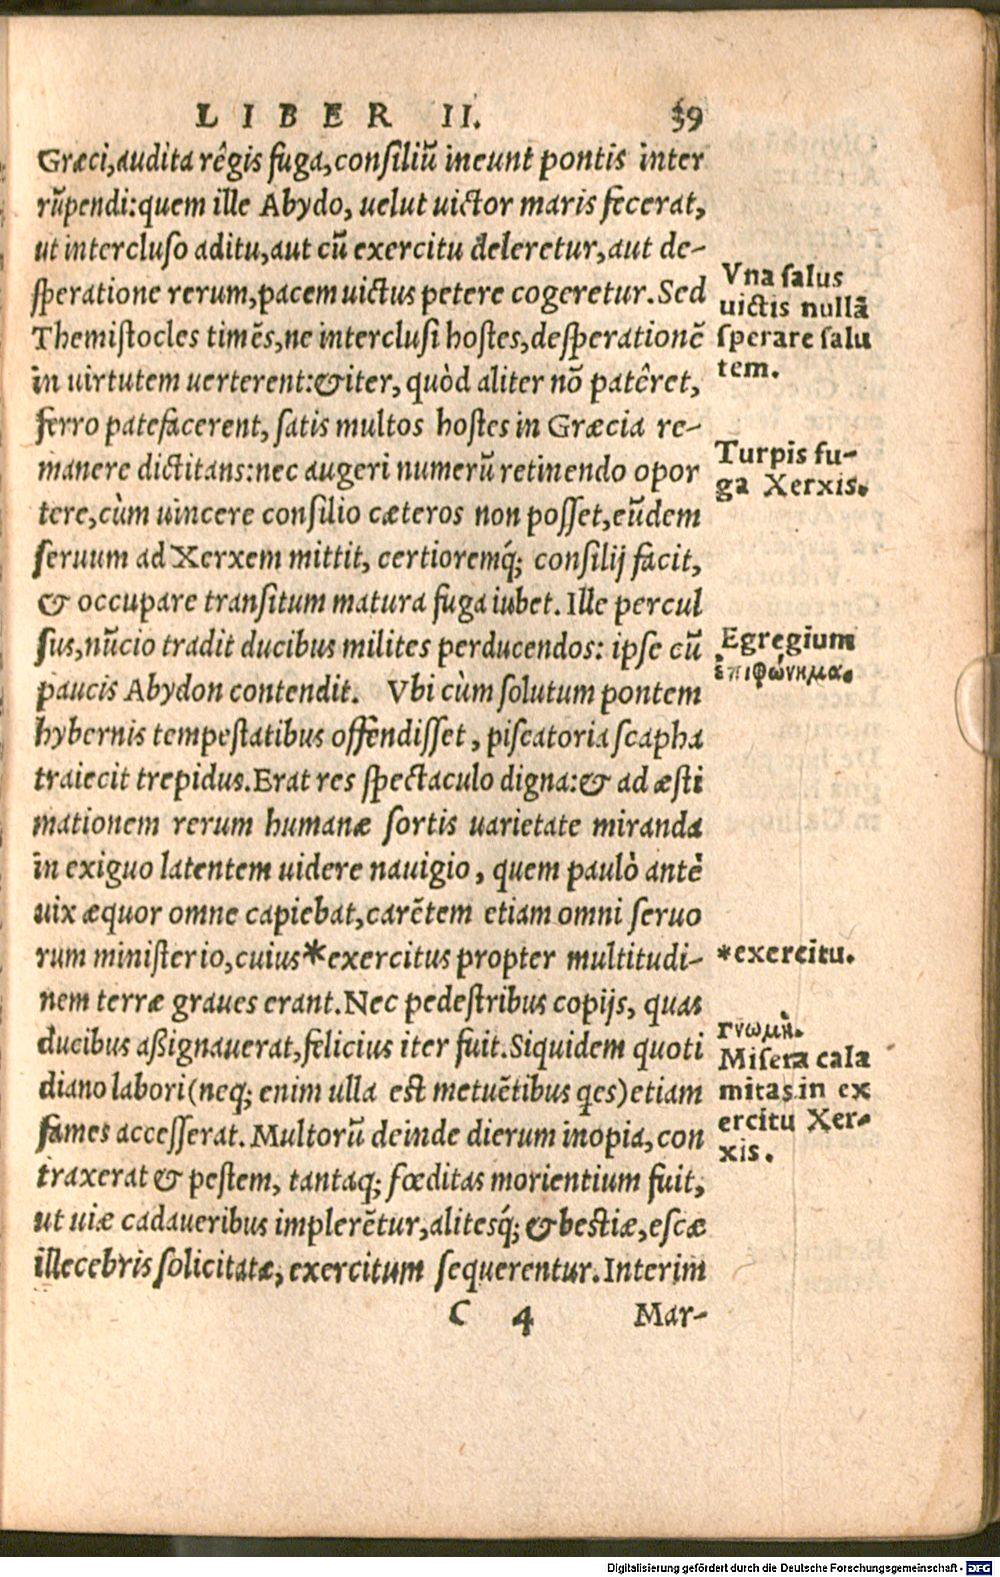 LIBER II. 39
Græci, audita rêgis fuga, consiliū ineunt pontis inter
rūpendi: quem ille Abydo, uelut uictor maris fecerat,
ut intercluso aditu, aut cū exercitu deleretur, aut de-
speratione rerum, pacem uictus petere cogeretur. Sed
Themistocles timēs, ne interclusi hostes, desperationē
in uirtutem uerterent: & iter, quòd aliter nō patêret,
ferro patefacerent, satis multos hostes in Græcia re-
manere dictitans: nec augeri numerū retinendo opor
tere, cùm uincere consilio cæteros non posset, eūdem
seruum ad Xerxem mittit, certioremq́; consilij facit,
& occupare transitum matura fuga iubet. Ille percul
sus, nūcio tradit ducibus milites perducendos: ipse cū
paucis Abydon contendit. Vbi cùm solutum pontem
hybernis tempestatibus offendisset, piscatoria scapha
traiecit trepidus. Erat res spectaculo digna: & ad æsti
mationem rerum humanæ sortis uarietate miranda
in exiguo latentem uidere nauigio, quem paulò antè
uix æquor omne capiebat, carētem etiam omni seruo
rum ministerio, cuius *exercitus propter multitudi-
nem terræ graues erant. Nec pedestribus copijs, quas
ducibus aßignauerat, felicius iter fuit. Siquidem quoti
diano labori (neq; enim ulla est metuētibus q̃es) etiam
fames accesserat. Multorū deinde dierum inopia, con
traxerat & pestem, tantaq; fœditas morientium fuit,
ut uiæ cadaueribus implerētur, alitesq́; & bestiæ, escæ
illecebris solicitatæ, exercitum sequerentur. Interim
C 4 Mar-
Vna salus
uictis nullā
sperare salu
tem.
Turpis fu-
ga Xerxis.
Egregium
ἐπιφώνημα.
*exercitu.
Γνωμὴ.
Misera cala
mitas in ex
ercitu Xer-
xis.
Digitalisierung gefördert durch die Deutsche Forschungsgemeinschaft - DFG